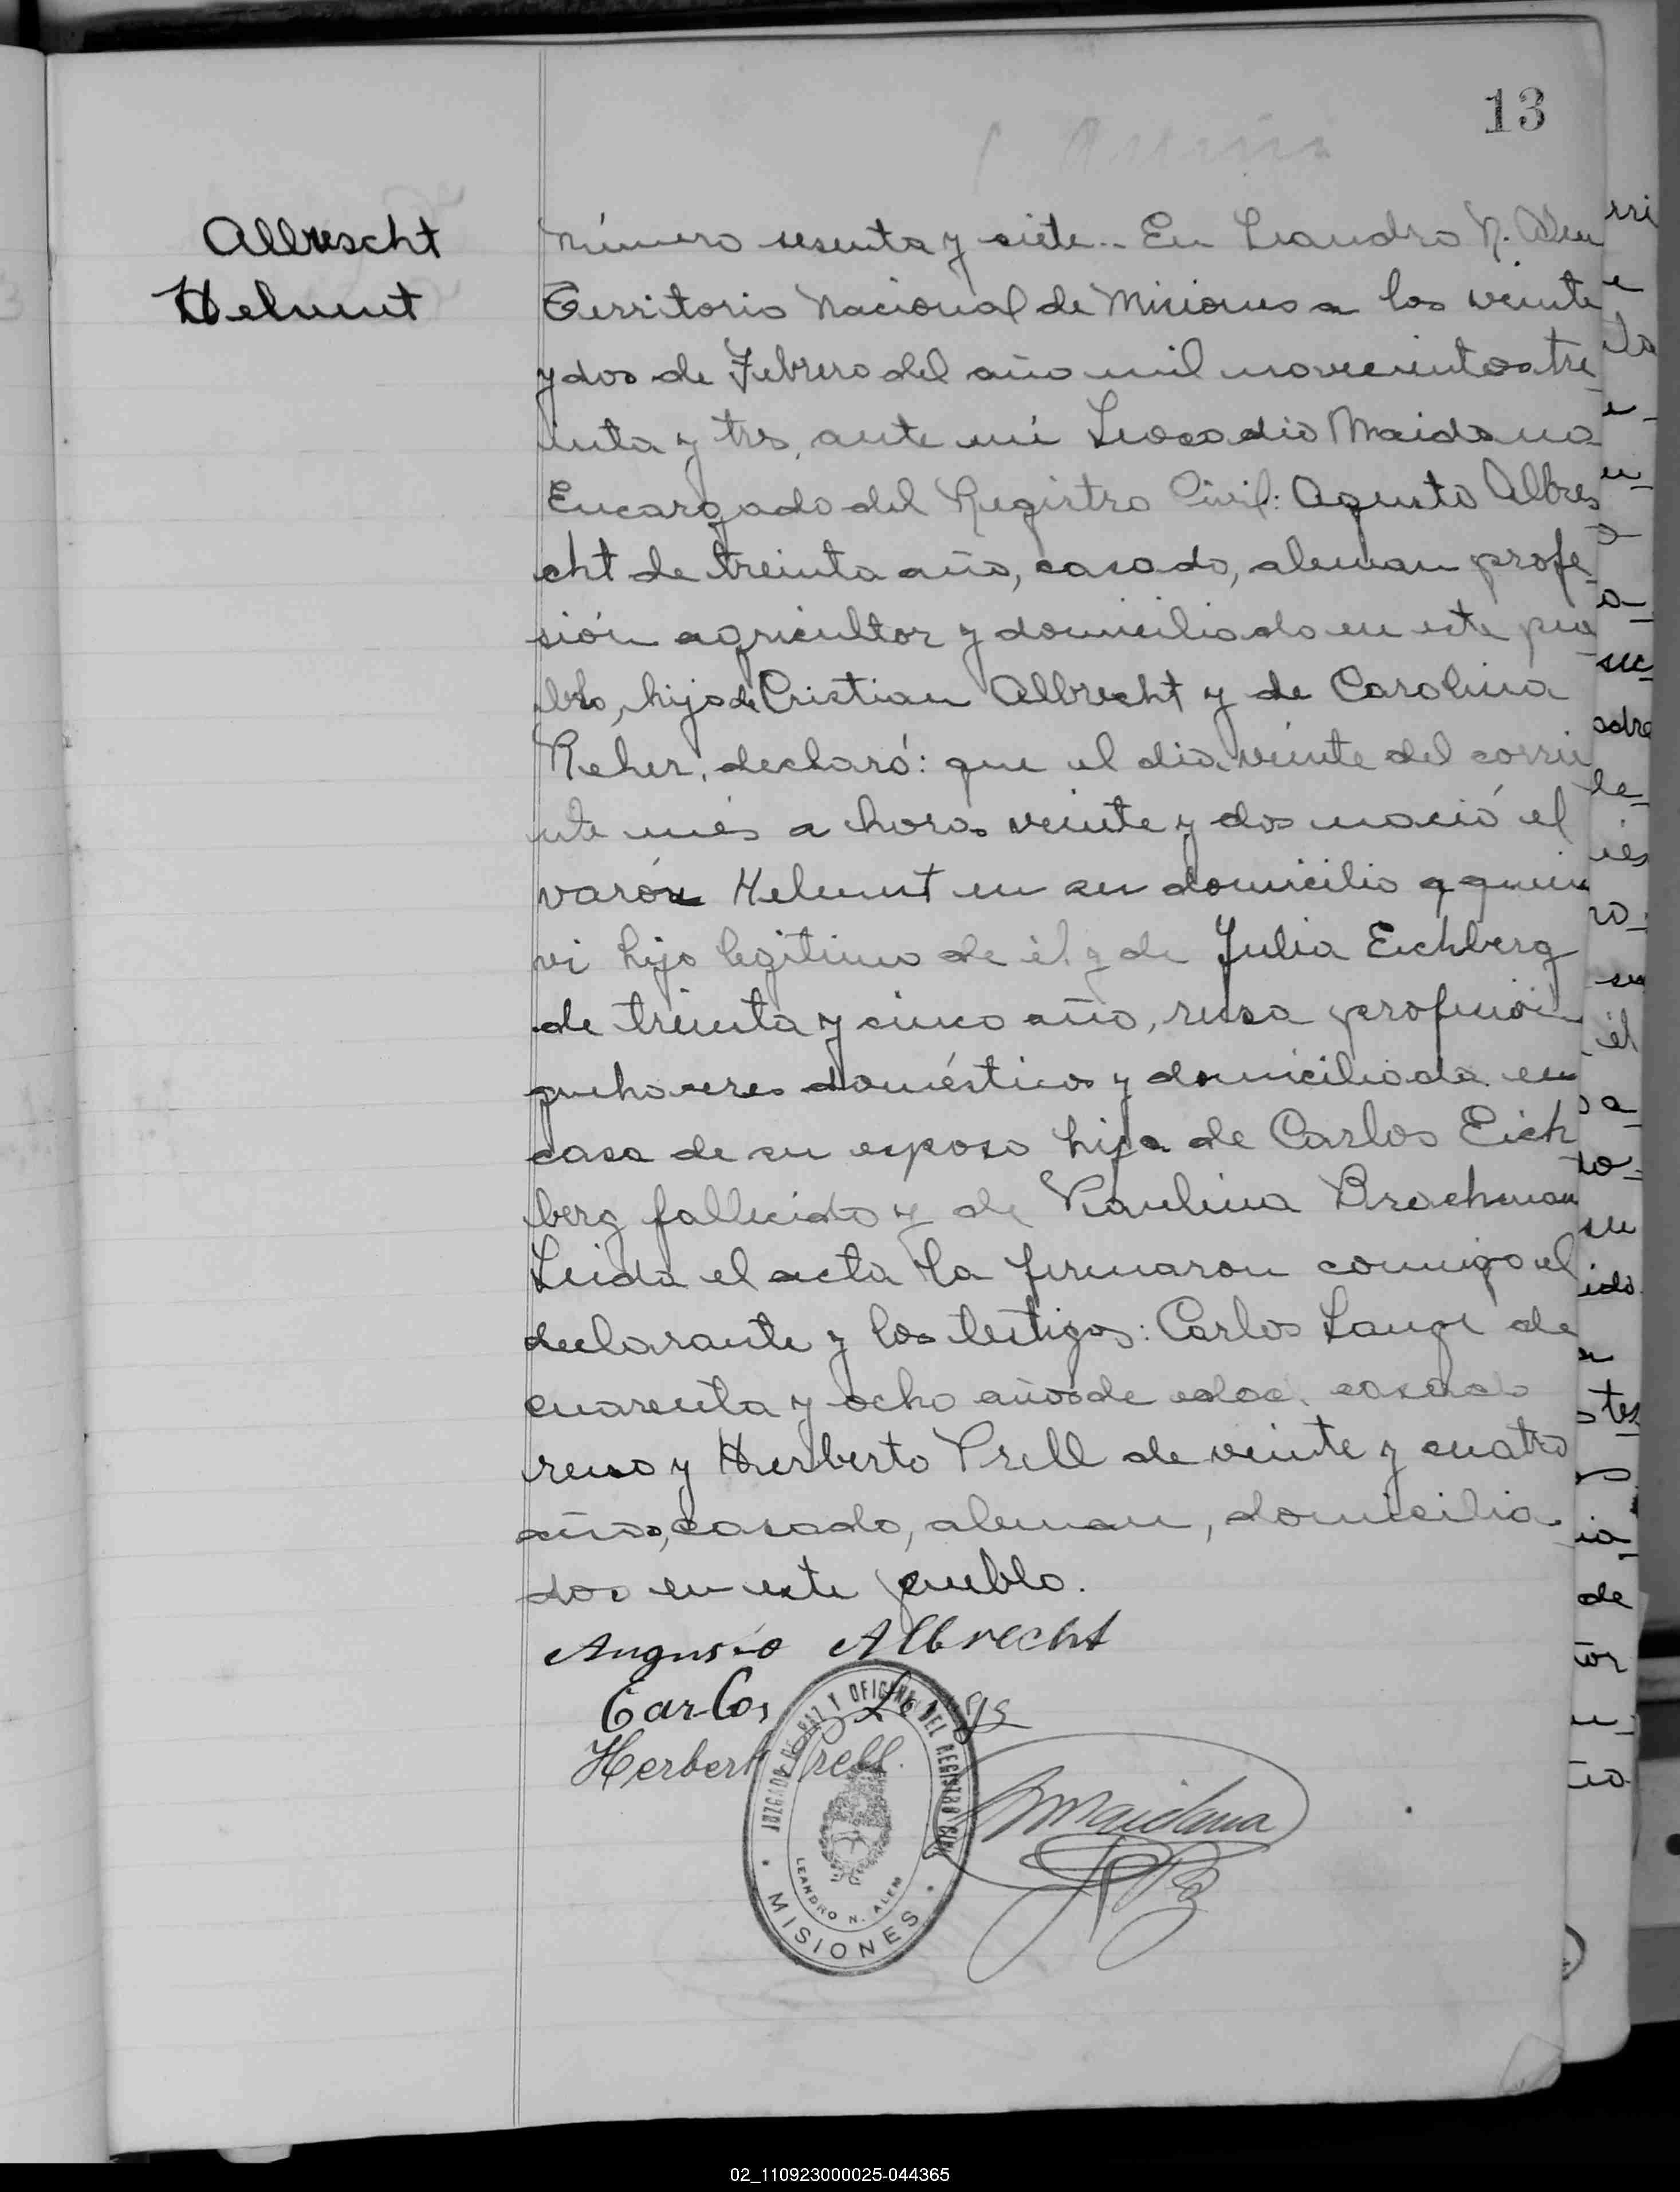 13
Albrescht
Helmut
Número sesenta y siete.- En Leandro N. Alem
Territorio Nacional de Misiones a los veinte
y dos de Febrero del año mil novecientos tre
inta y tres, ante mi Leocadio Maidana
Encargado del Registro Civil: Agusto Albres
cht de treinta año, casado, aleman profe-
sión agricultor y domiciliado en este pue
blo, hijo de Cristian Albrecht y de Carolina
Reher, declaró: que el dia veinte del corrie
nte més a horas veinte y dos nació el
varón Helmut en su domicilio a quien
vi hijo legitimo de él y de Julia Eichberg
de treinta y cinco año, rusa profesión
quehaceres doméstico y domiciliada en
casa de su esposo hija de Carlos Eich
berg fallecido y de Paulina Brachman
Leida el acta la firmaron conmigo el
declarante y los testigos: Carlos Lange de
cuarenta y ocho años de edad casado
ruso y Herberto Prell de veinte y cuatro
años, casado, aleman, domicilia-
dos en este pueblo.
Augusto Albrecht
Carlos Lange
Herbert Prell.
LMaidana
JUZGADO DE PAZ Y OFICINA DEL REGISTRO CIVIL
LEANDRO N. ALEM
MISIONES
02_110923000025-044365